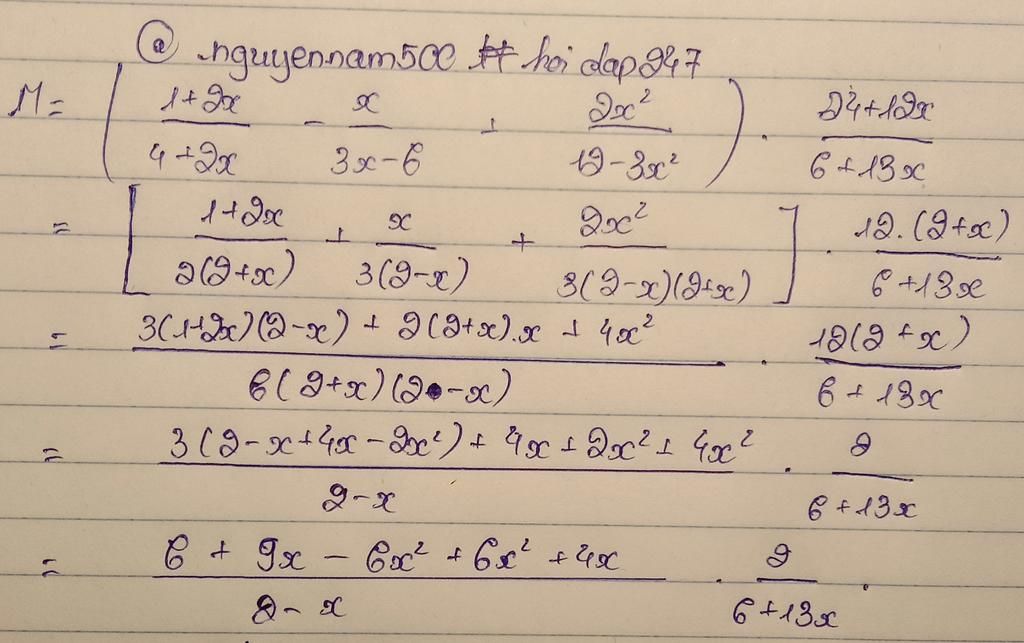 @ nguyennam500 # hoi dap247
M = ( (1+2x)/(4+2x) - x/(3x-6) + 2x²/(12-3x²) ) . (24+12x)/(6+13x)
= [ (1+2x)/(2(2+x)) + x/(3(2-x)) + 2x²/(3(2-x)(2+x)) ] . (12.(2+x))/(6+13x)
= (3(1+2x)(2-x) + 2(2+x).x + 4x²)/(6(2+x)(2-x)) . (12(2+x))/(6+13x)
= (3(2-x+4x-2x²) + 4x + 2x² + 4x²)/(2-x) . 2/(6+13x)
= (6 + 9x - 6x² + 6x² + 4x)/(2-x) . 2/(6+13x) .